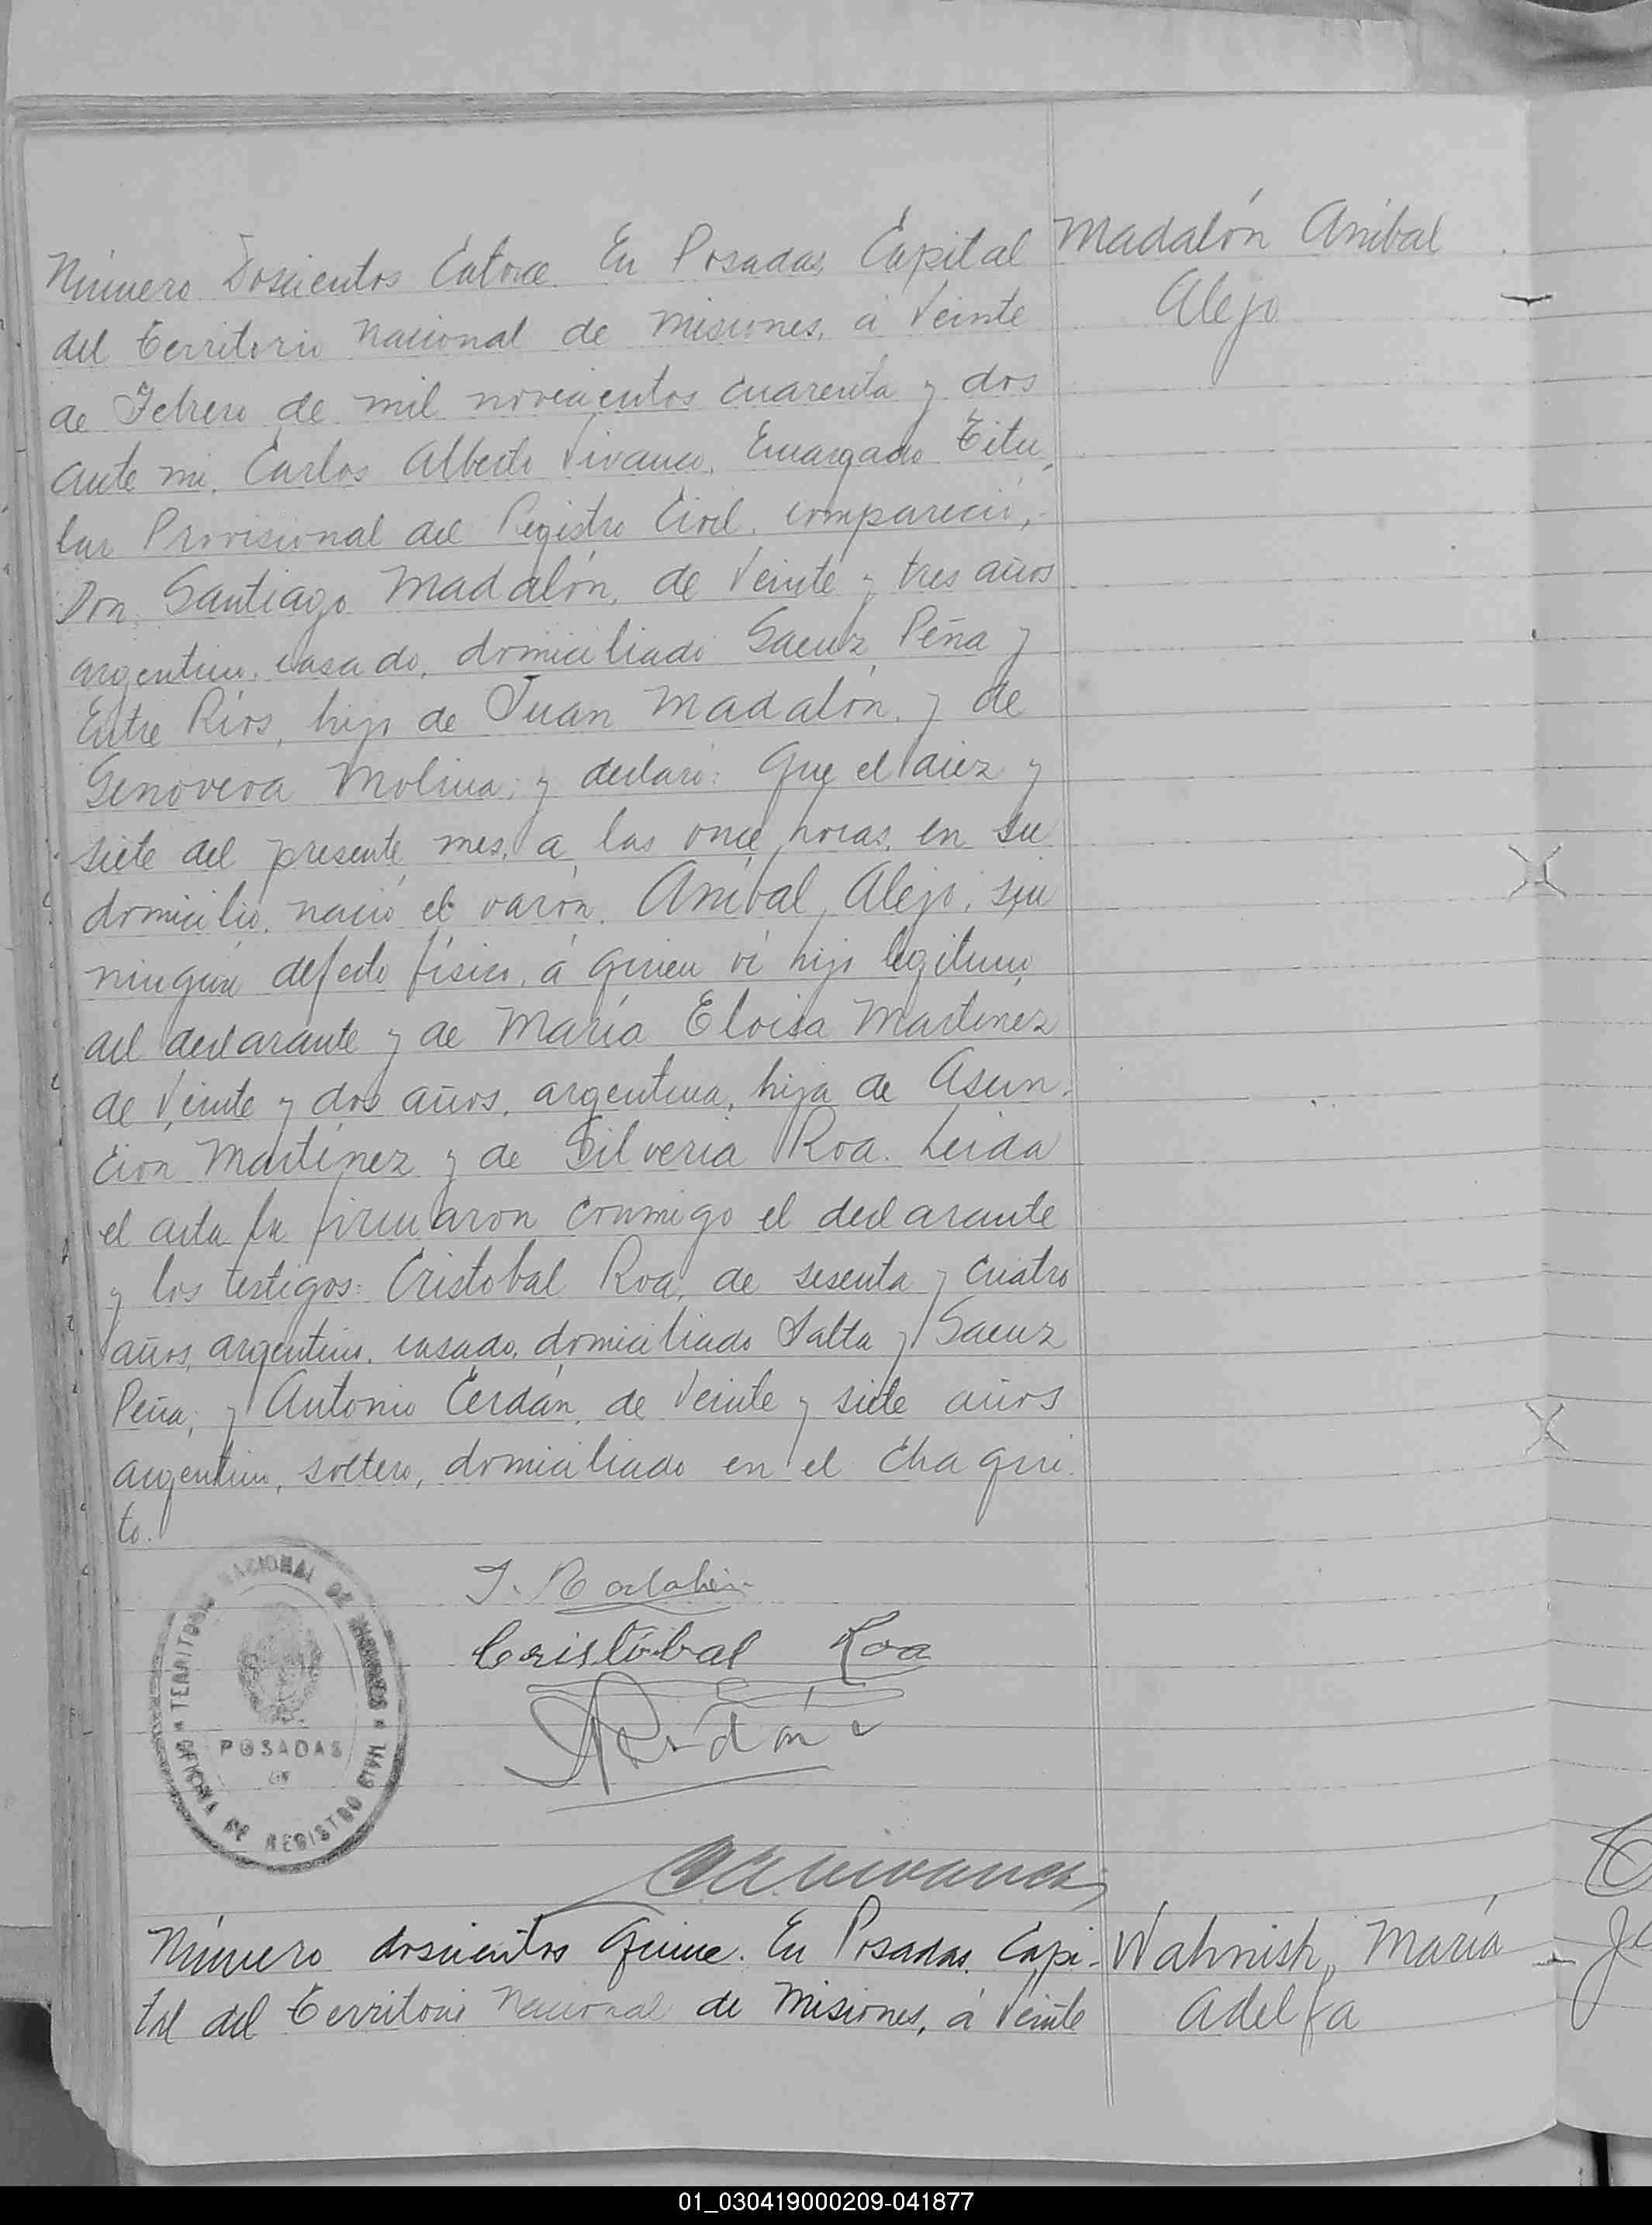 Madalón Aníbal
Alejo
Número Doscientos Catorce. En Posadas, Capital
del Territorio Nacional de Misiones, á Veinte
de Febrero de mil novecientos cuarenta y dos
ante mi, Carlos Alberto Vivanco, Encargado Titu-
lar Provisional del Registro Civil, compareció,
Don Santiago Madalón, de Veinte y tres años
argentino, casado, domiciliado Saenz Peña y
Entre Ríos, hijo de Juan Madalón, y de
Genoveva Molina; y declaró: Que el diez y
siete del presente mes, a las once horas, en su
domicilio, nació el varón, Aníbal Alejo, sin
ningún defecto físico, á quien ví hijo legítimo
del declarante y de María Eloisa Martínez
de Veinte y dos años, argentina, hija de Asun-
ción Martínez y de Silveria Roa. Leida
el acta la firmaron conmigo el declarante
y los testigos: Cristobal Roa, de sesenta y cuatro
años, argentino, casado, domiciliado Salta y Saenz
Peña; y Antonio Cerdán, de Veinte y siete años
argentino, soltero, domiciliado en el Chaqui-
to.
TERRITORIO NACIONAL DE MISIONES
POSADAS
OFICINA DE REGISTRO CIVIL
Cristóbal Roa
CAVivanco
Wahnish, María
Adelfa
Número doscientos Quince. En Posadas, Capi-
tal del Territorio Nacional de Misiones, á Veinte
01_030419000209-041877